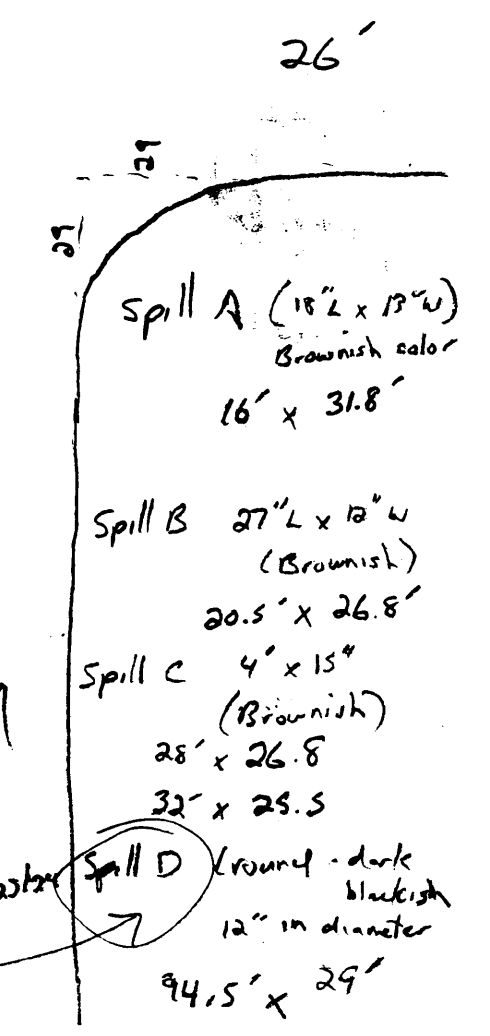 26'
29
29
Spill A (18"L x 13"W)
Brownish color
16' x 31.8'
Spill B 27"L x 12" W
(Brownish)
20.5' x 26.8'
Spill C 4' x 15"
(Brownish)
28' x 26.8
32' x 25.5
Spill D (round - dark
blackish
12" in diameter
94.5' x 29'